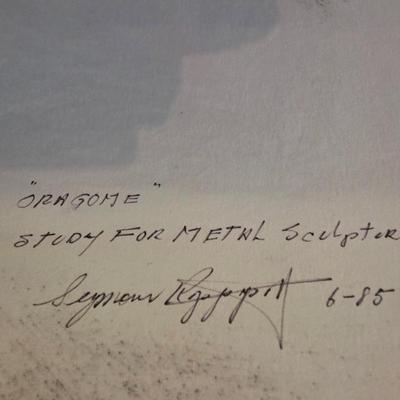 "ORAGOME"
STUDY FOR METAL Sculptur
Seymour Rappaport 6-85